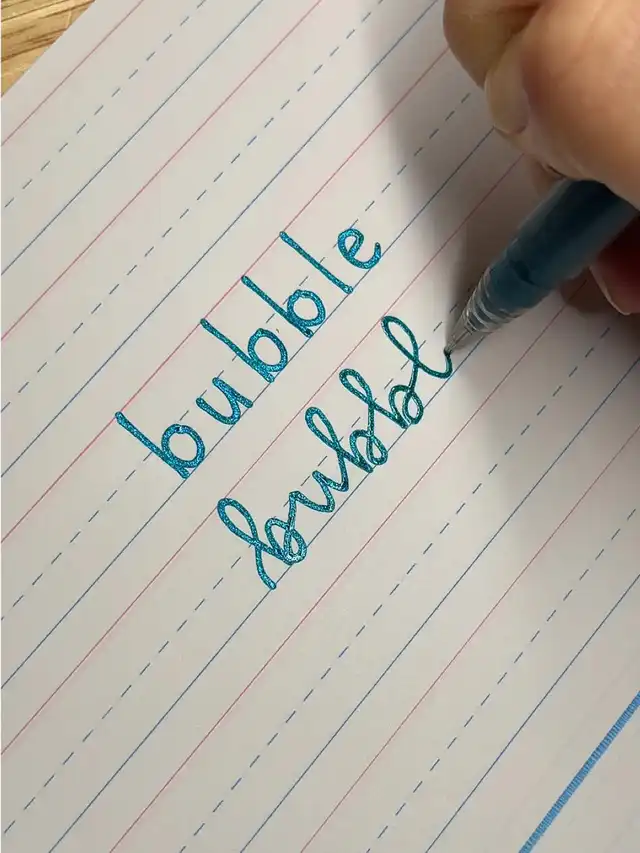 bubble
bubbl